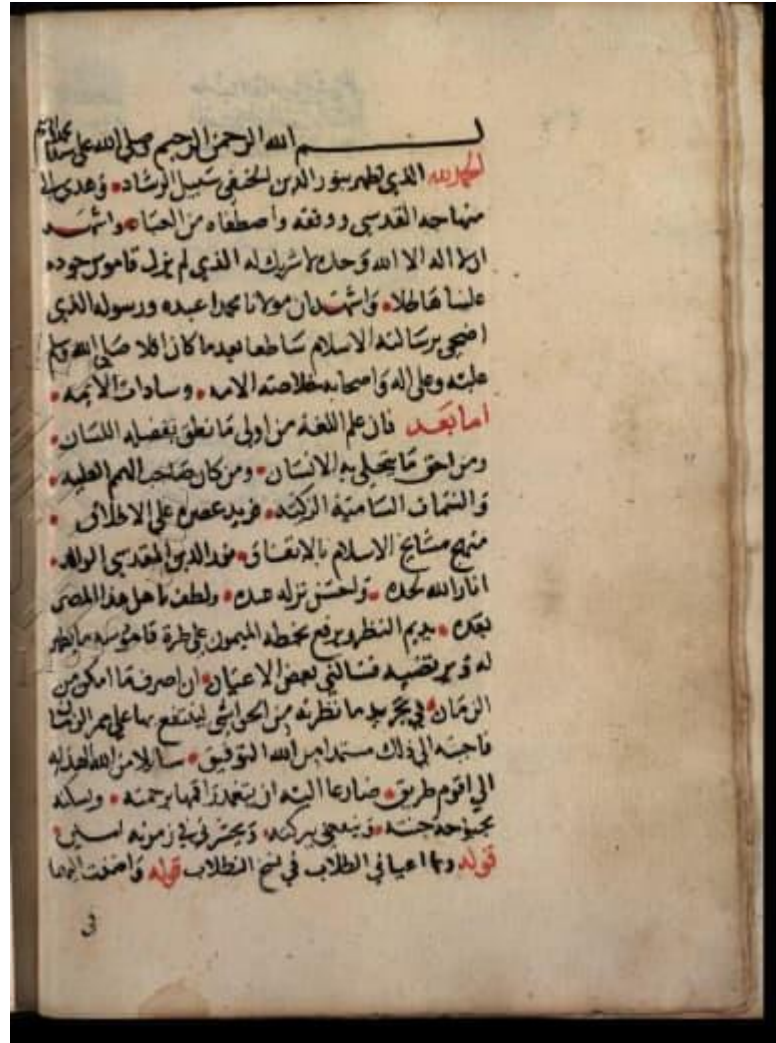 بسم الله الرحمن الرحيم وصلى الله على سيدنا محمد
الحمد لله الذي اظهر بنور الدين الحنفي سبيل الرشاد وهدى الى
منهاجه القدسي ووفقه واصطفاه من العباد واشهد
ان لا اله الا الله وحده لا شريك له الذي لم يزل قاموس جوده
علينا هاطلا واشهد ان مولانا محمدا عبده ورسوله الذي
اضحى برسالته الاسلام ساطعا بعد ما كان افلا صلى الله وسلم
عليه وعلى اله واصحابه خلاصة الامه وسادات الايمه
اما بعد فان علم اللغة من اولى ما نطق بفضله اللسان
ومن احق ما يتحلى به الانسان ومن كان صاحب الهمم العليه
والسمات السامية الزكيه فريد عصره على الاطلاق
منهج مشايخ الاسلام بالاتفاق نور الدين المقدسي الوالد
انار الله لحده واحسن نزله عنده ولطف باهل هذا المصر
بعده يديم النظر ويرقم بخطه الميمون على طرة قاموسه ما يظهر
له ويرتضيه فسالني بعض الاعيان ان اصرف ما امكن من
الزمان في تجريد ما نظرته من الحواشي لينتفع بها على ممر
فاجبته الى ذلك مستمدا من الله التوفيق سايلا من الله الهدايه
الى اقوم طريق ضارعا اليه ان يتغمد راقمها برحمته ويسكنه
بحبوحة جنته وينفعني ببركته ويحشرني في زمرته امين
قوله ولما اعياني الطلاب في نسخ الطلاب قوله واضفت اليها